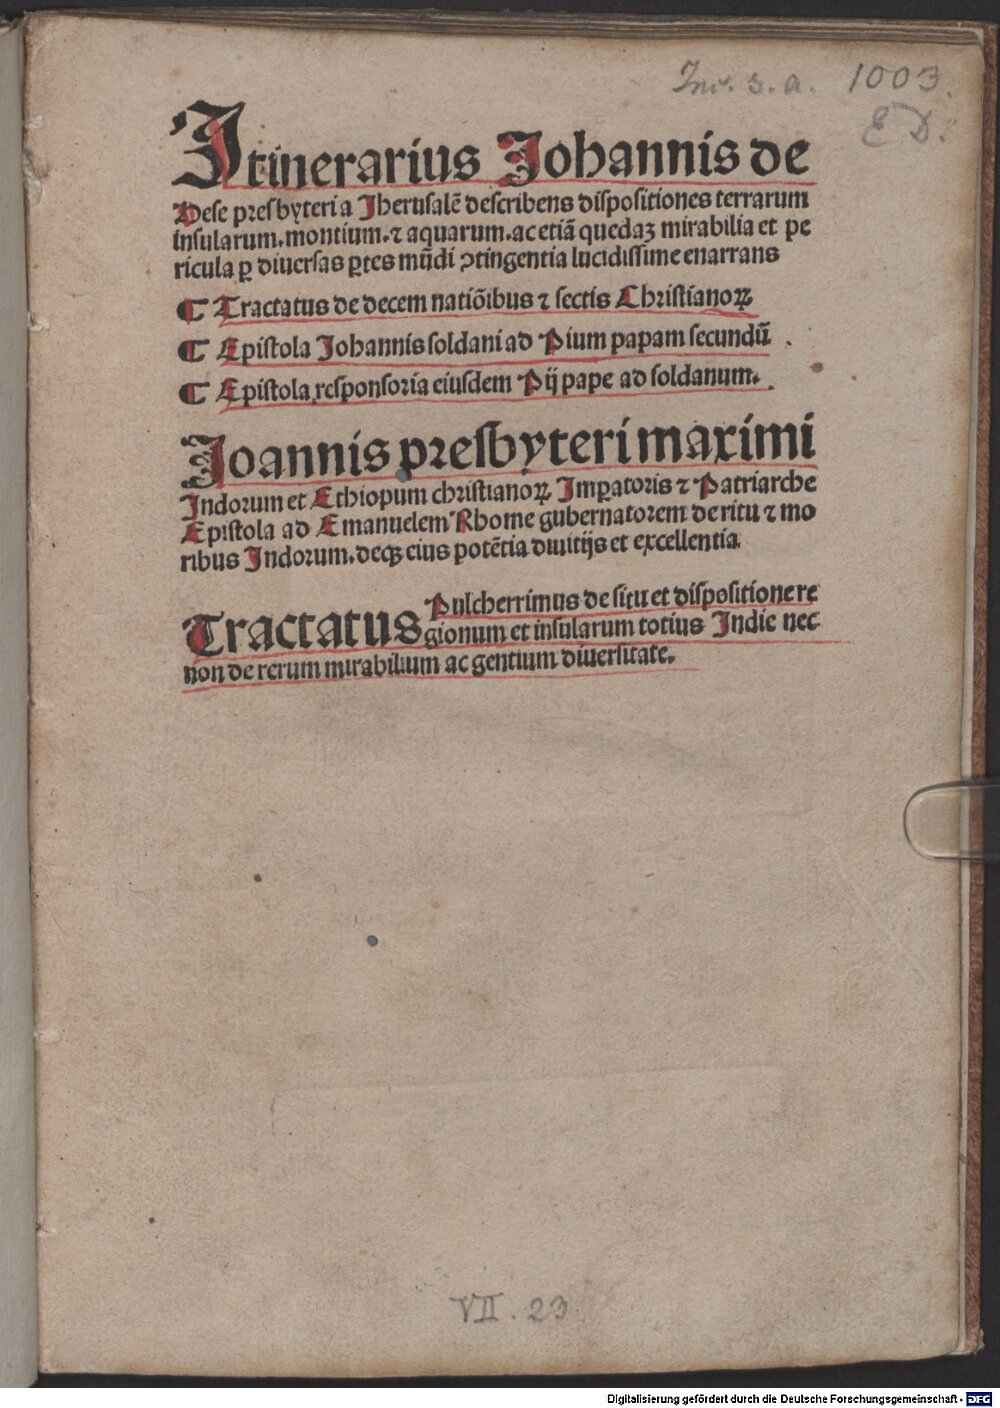 Inc. s. a. 1003.
E D.
Itinerarius Johannis de
Hese presbyteri a Jherusalē describens dispositiones terrarum
insularum. montium. ⁊ aquarum. ac etiā quedaʒ mirabilia et pe
ricula ꝑ diuersas ꝑtes mūdi ꝯtingentia lucidissime enarrans
¶ Tractatus de decem natiōibus ⁊ sectis Christianoꝝ
¶ Epistola Johannis soldani ad Pium papam secundū
¶ Epistola responsoria eiusdem Pij pape ad soldanum.
Joannis presbyteri maximi
Indorum et Ethiopum christianoꝝ Imꝑatoris ⁊ Patriarche
Epistola ad Emanuelem Rhome gubernatorem de ritu ⁊ mo
ribus Indorum. deqꝫ eius potētia diuitijs et excellentia.
Tractatus Pulcherrimus de situ et dispositione re
gionum et insularum totius Indie nec
non de rerum mirabilium ac gentium diuersitate.
VII. 23
Digitalisierung gefördert durch die Deutsche Forschungsgemeinschaft - DFG